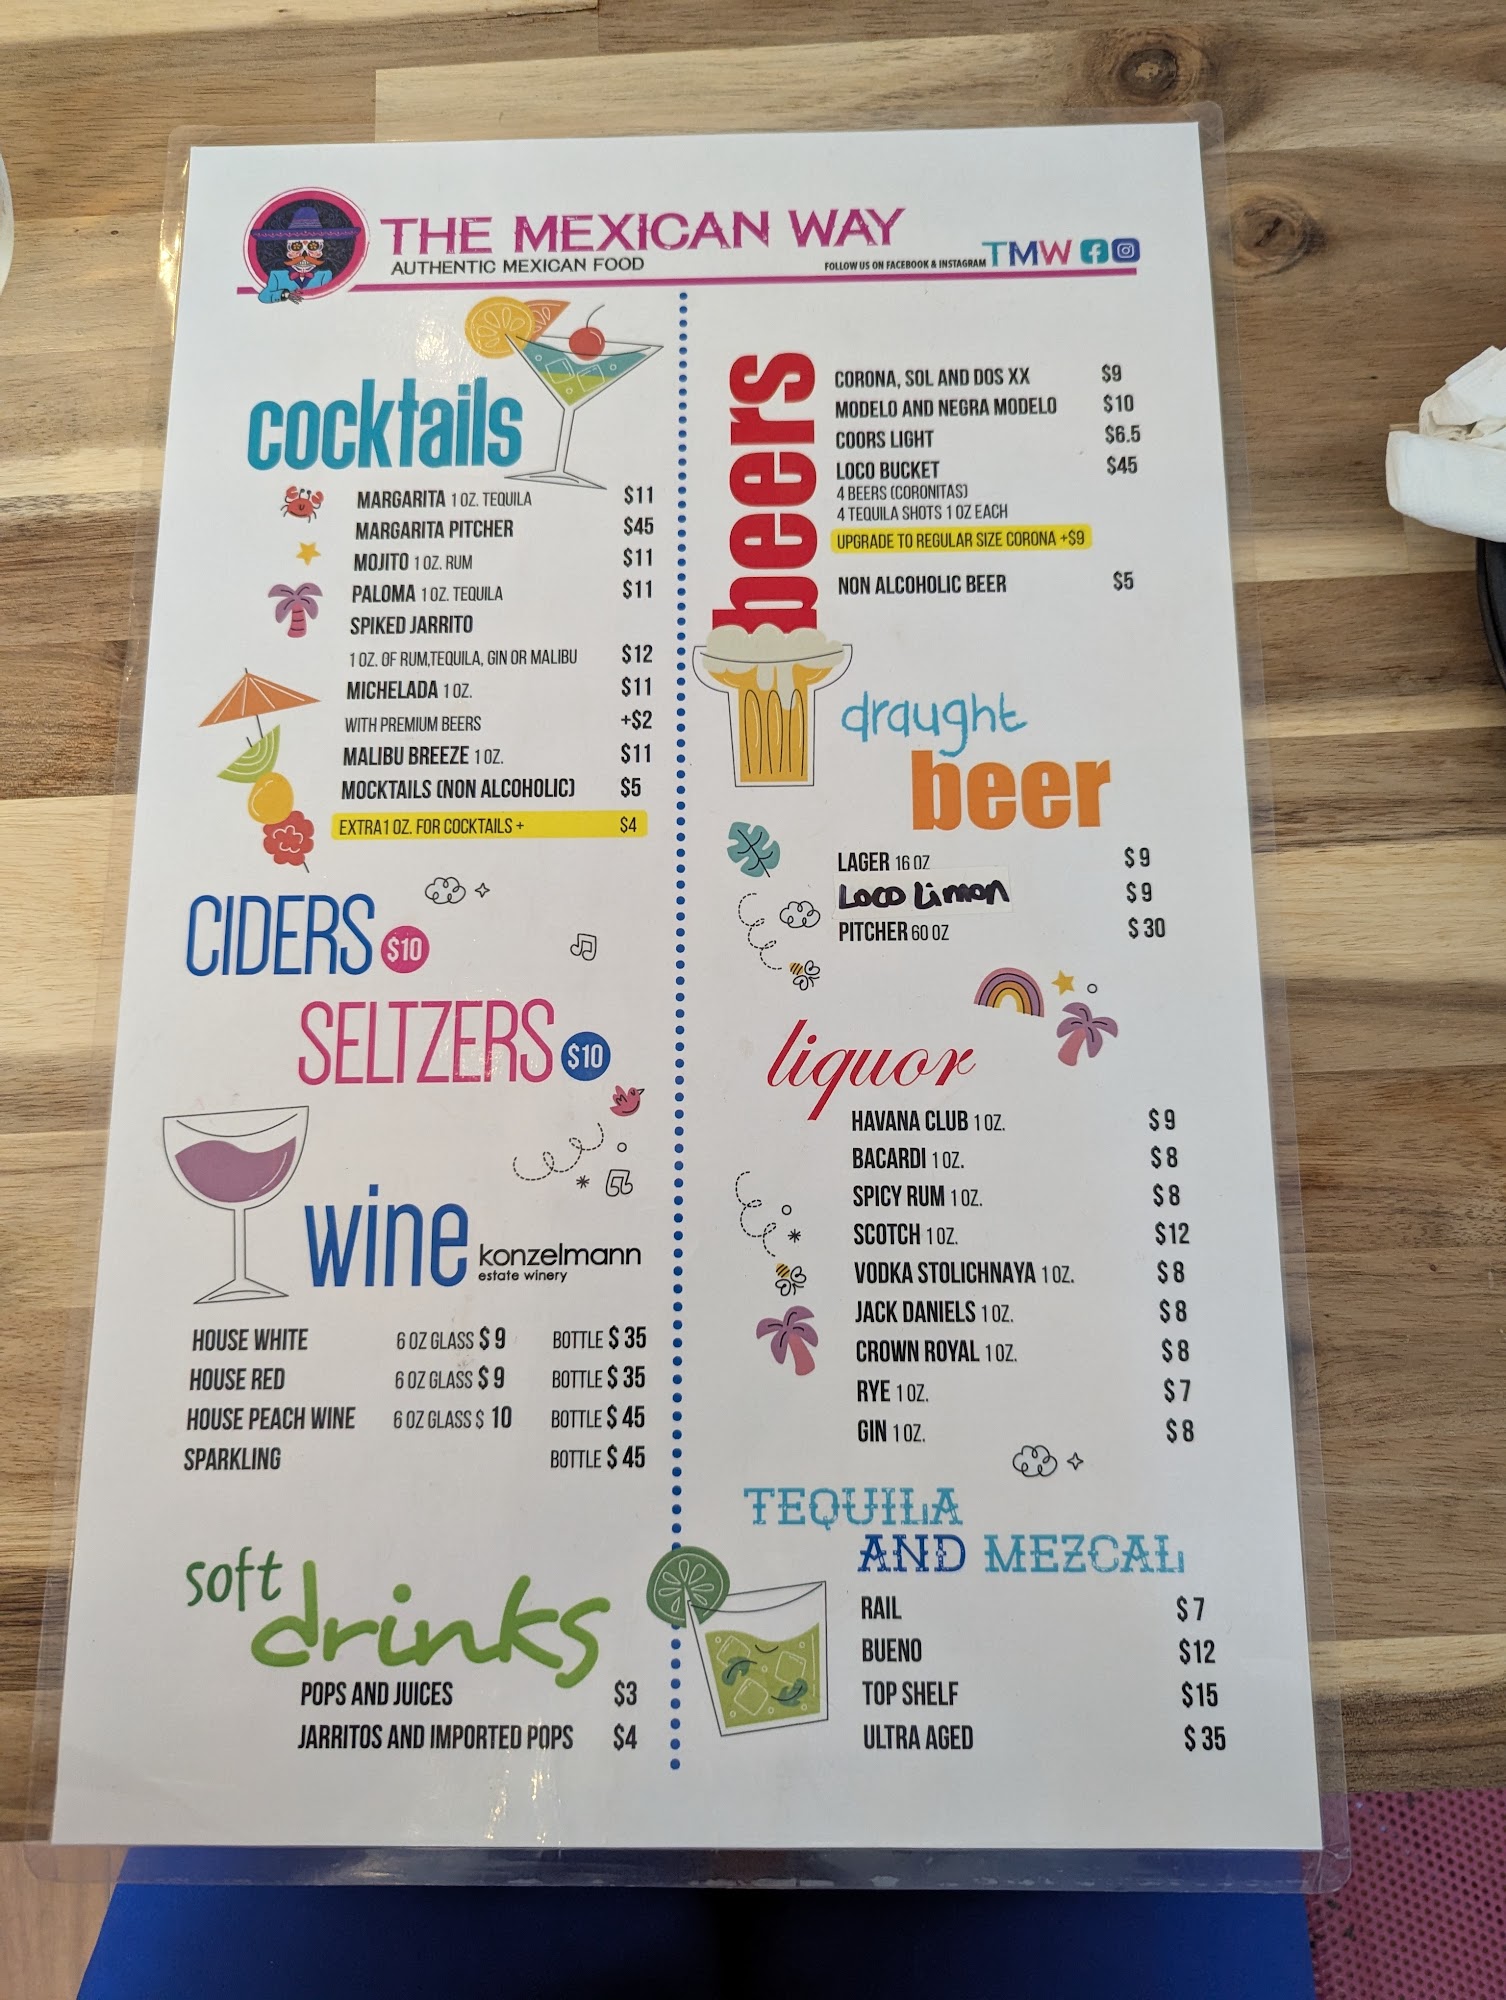 THE MEXICAN WAY
AUTHENTIC MEXICAN FOOD
FOLLOW US ON FACEBOOK & INSTAGRAM TMW
cocktails
MARGARITA 1 OZ. TEQUILA $11
MARGARITA PITCHER $45
MOJITO 1 OZ. RUM $11
PALOMA 1 OZ. TEQUILA $11
SPIKED JARRITO
1 OZ. OF RUM,TEQUILA, GIN OR MALIBU $12
MICHELADA 1 OZ. $11
WITH PREMIUM BEERS +$2
MALIBU BREEZE 1 OZ. $11
MOCKTAILS (NON ALCOHOLIC) $5
EXTRA1 OZ. FOR COCKTAILS + $4
CIDERS $10
SELTZERS $10
wine konzelmann
estate winery
HOUSE WHITE 6 OZ GLASS $ 9 BOTTLE $ 35
HOUSE RED 6 OZ GLASS $ 9 BOTTLE $ 35
HOUSE PEACH WINE 6 OZ GLASS $ 10 BOTTLE $ 45
SPARKLING BOTTLE $ 45
soft
drinks
POPS AND JUICES $3
JARRITOS AND IMPORTED POPS $4
beers
CORONA, SOL AND DOS XX $9
MODELO AND NEGRA MODELO $10
COORS LIGHT $6.5
LOCO BUCKET $45
4 BEERS (CORONITAS)
4 TEQUILA SHOTS 1 OZ EACH
UPGRADE TO REGULAR SIZE CORONA +$9
NON ALCOHOLIC BEER $5
draught
beer
LAGER 16 OZ $ 9
Loco Limon $ 9
PITCHER 60 OZ $ 30
liquor
HAVANA CLUB 1 OZ. $ 9
BACARDI 1 OZ. $ 8
SPICY RUM 1 OZ. $ 8
SCOTCH 1 OZ. $12
VODKA STOLICHNAYA 1 OZ. $ 8
JACK DANIELS 1 OZ. $ 8
CROWN ROYAL 1 OZ. $ 8
RYE 1 OZ. $ 7
GIN 1 OZ. $ 8
TEQUILA
AND MEZCAL
RAIL $ 7
BUENO $12
TOP SHELF $15
ULTRA AGED $ 35